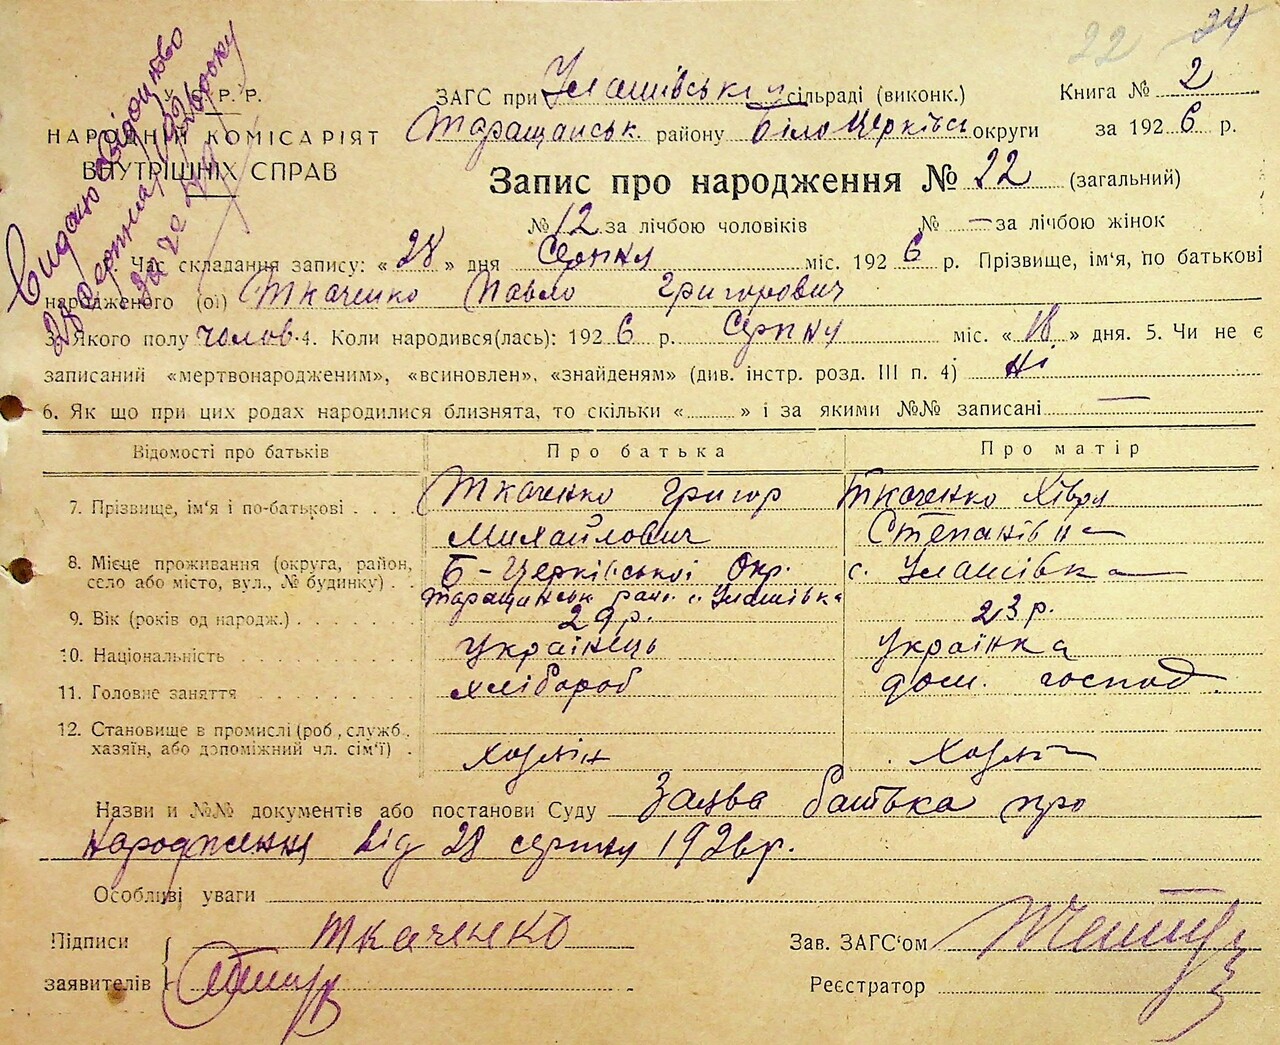 22 24
Видано свідоцтво
28 серпня 1926 року
за № 22
Р. Р.
НАРОДНІЙ КОМІСАРІЯТ
ВНУТРІШНІХ СПРАВ
ЗАГС при Улашівськ сільраді (виконк.) Книга № 2
Таращанськ району Білоцерківсь округи за 1926 р.
Запис про народження № 22 (загальний)
№ 12 за лічбою чоловіків № — за лічбою жінок
Час складання запису: «28» дня Серпня міс. 1926 р. Прізвище, ім'я, по батькові
народженого (ої) Ткаченко Павло Григорович
3. Якого полу чолов. 4. Коли народився(лась): 1926 р. Серпня міс. «18» дня. 5. Чи не є
записаний «мертвонародженим», «всиновлен», «знайденям» (див. інстр. розд. III п. 4) Ні
6. Як що при цих родах народилися близнята, то скільки «........» і за якими №№ записані —
Відомості про батьків Про батька Про матір
7. Прізвище, ім'я і по-батькові . . . . Ткаченко Григор Ткаченко Хівря
Михайлович Степанівна
8. Місце проживання (округа, район, Б-Церківської Окр. с. Улашівка
село або місто, вул., № будинку) . . Таращанськ район с. Улашівка
9. Вік (років од народж.) . . . . . . . 29 р. 23 р.
10. Національність . . . . . . . . . . Українець Українка
11. Головне заняття . . . . . . . . . Хлібороб дом. господ.
12. Становище в промислі (роб., служб.,
хазяїн, або допоміжний чл. сім'ї) . Хазяін Хазяін
Назви и №№ документів або постанови Суду Заява батька про
народження від 28 серпня 1926 р.
Особливі уваги
Підписи Ткаченко Зав. ЗАГС'ом
заявителів Реєстратор